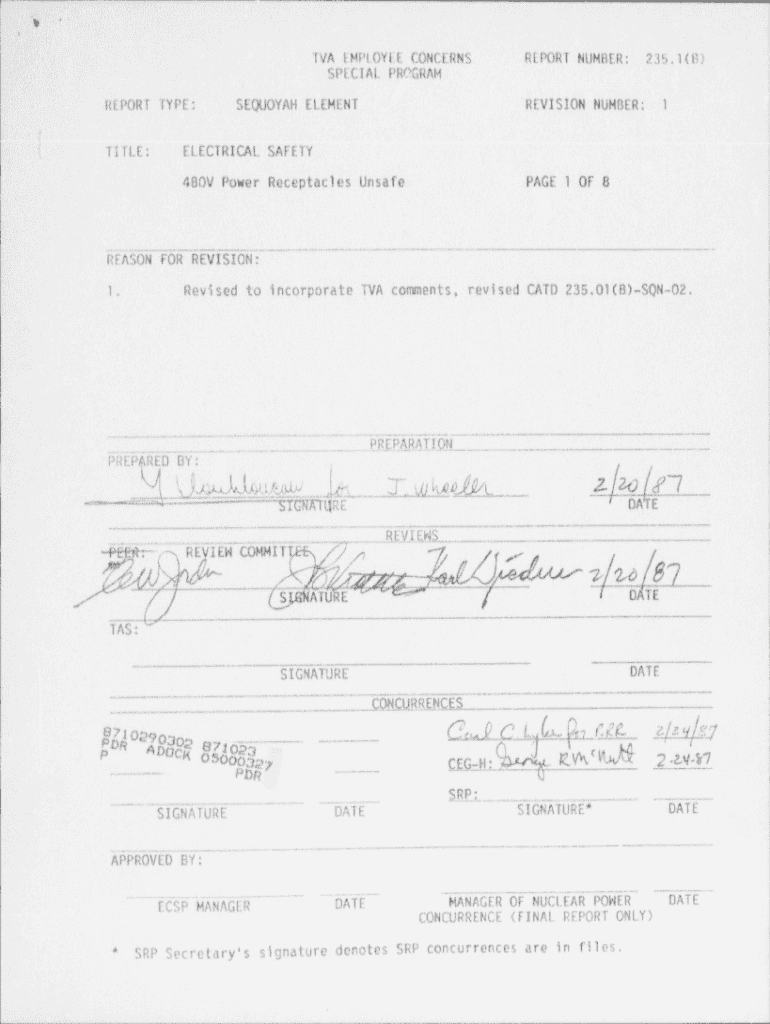 TVA EMPLOYEE CONCERNS REPORT NUMBER: 235.1(B)
SPECIAL PROGRAM
REPORT TYPE: SEQUOYAH ELEMENT REVISION NUMBER: 1
TITLE: ELECTRICAL SAFETY
480V Power Receptacles Unsafe PAGE 1 OF 8
REASON FOR REVISION:
1. Revised to incorporate TVA comments, revised CATD 235.01(B)-SQN-02.
PREPARATION
PREPARED BY:
for J. Wheeler 2/20/87
SIGNATURE DATE
REVIEWS
PEER: REVIEW COMMITTEE
Karl 2/20/87
SIGNATURE DATE
TAS:
SIGNATURE DATE
CONCURRENCES
Carl C for RRR 2/24/87
8710290302 871023
PDR ADOCK 05000327
P PDR
CEG-H: George R McNutt 2-24-87
SRP:
SIGNATURE DATE SIGNATURE* DATE
APPROVED BY:
ECSP MANAGER DATE MANAGER OF NUCLEAR POWER DATE
CONCURRENCE (FINAL REPORT ONLY)
* SRP Secretary's signature denotes SRP concurrences are in files.